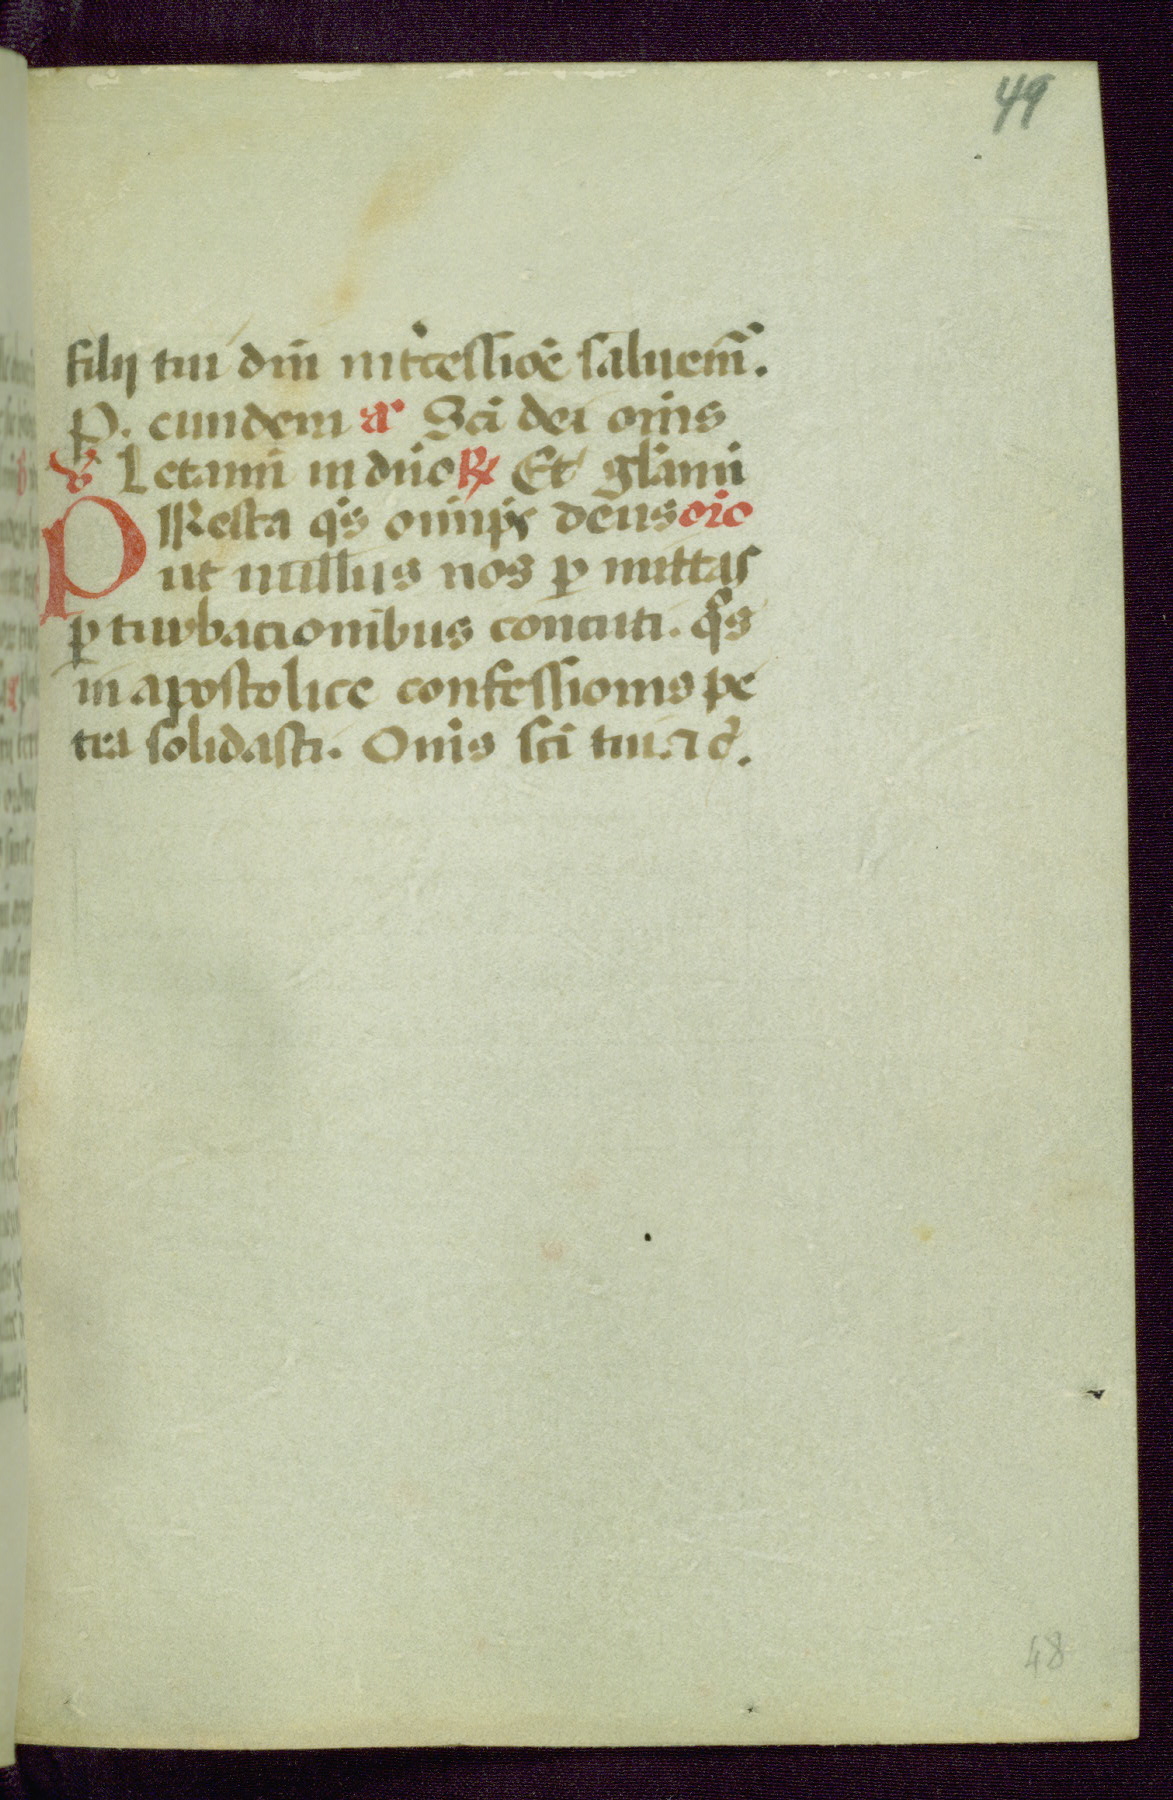 49
filij tui dñi nr̃i ĩtercessiõe saluem̃.
P. eundem a͞ Sc̃i dei om̃s
v̄ Letami in dño ℟ Et gl̃ami
PResta q̃s omp̃s deus or̃o
ut nullus nos ꝑ mittas
ꝑ turbacionibus concuti. q̃s
in apostolice confessionis pe
tra solidasti. Om̃s sc̃i tui
48